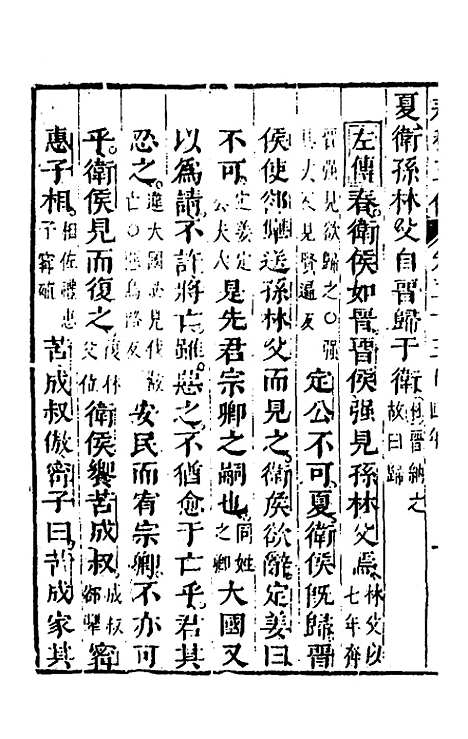 夏衛孫林父自晉歸于衛晉納之故曰歸
左傳春衛侯如晉晉侯强見孫林父焉林父以七年奔
晉强見欲歸之〇强其丈反見賢遍反定公不可夏衛侯既歸晉
侯使郤犨送孫林父而見之衛侯欲辭定姜曰
不可定姜定公夫人是先君宗卿之嗣也同姓之卿大國又
以為請不許將亡雖惡之不猶愈于亡乎君其
忍之違大國必見伐故亡〇惡烏路反安民而宥宗卿不亦可
乎衛侯見而復之復林父位衛侯饗苦成叔成叔郤犨甯
惠子相相佐禮惠子甯殖苦成叔傲甯子曰苦成家其